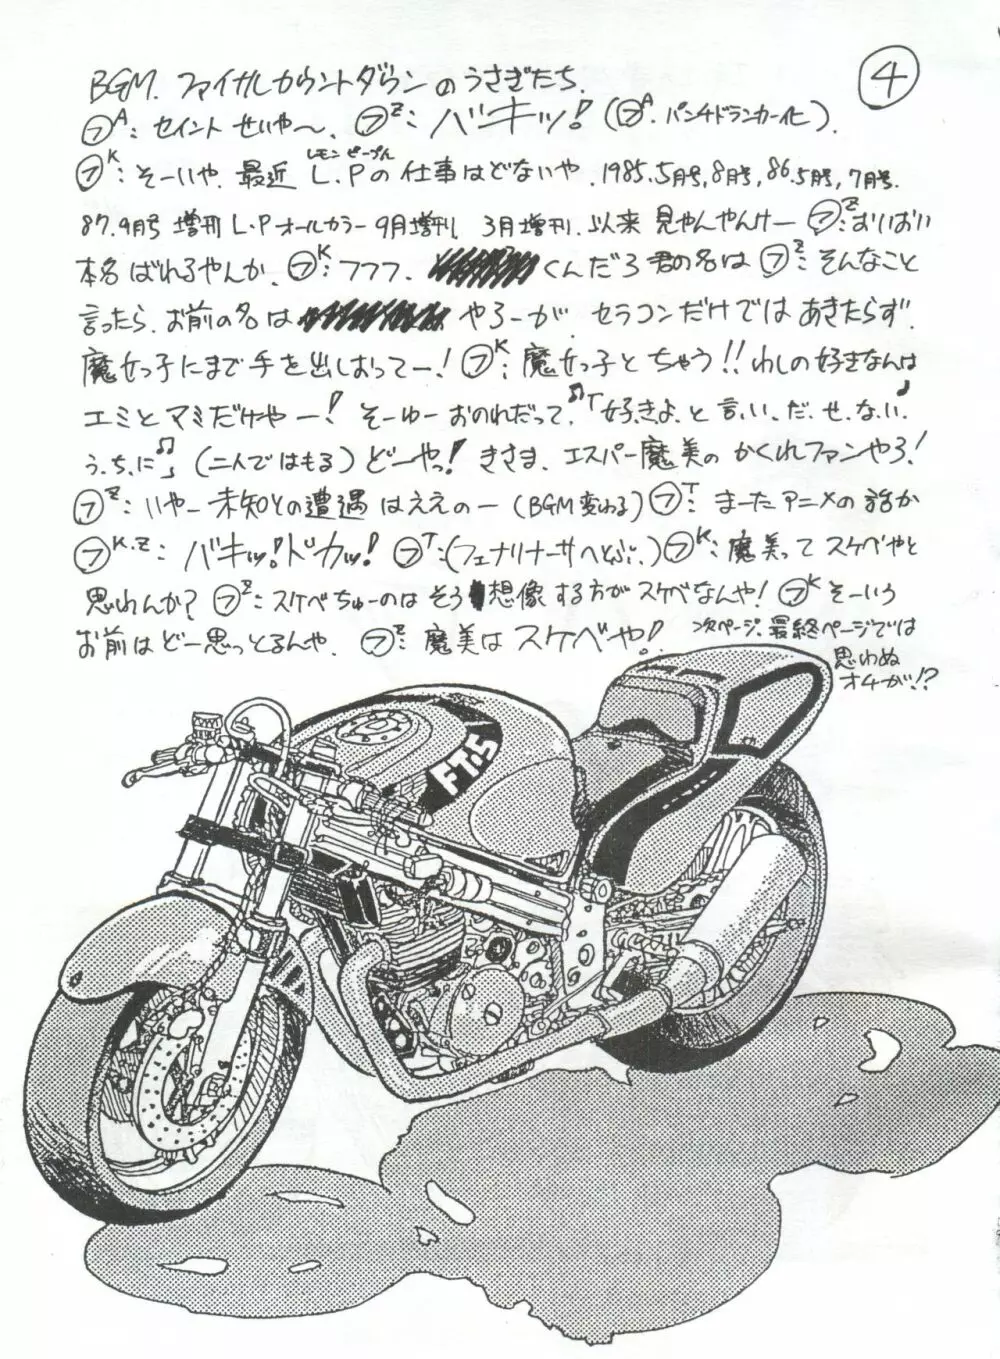 ④
BGM. ファイナルカウントダウンのうさぎたち.
㋫A: セイント せいや〜. ㋫Z: バキッ! (㋫A. パンチドランカー化).
㋫K: そーいや. 最近 L.Pの 仕事はどないや. 1985.5月号, 8月号, 86.5月号, 7月号.
レモン ピープル
87.9月号 増刊 L.Pオールカラー 9月増刊 3月増刊. 以来 見やんやんけー ㋫Z: おいおい
本名 ばれるやんか. ㋫K: フフフ. くんだろ 君の名は ㋫Z: そんなこと
言ったら. お前の名は やろーが. セラコンだけでは あきたらず.
魔女っ子にまで 手を出しおってー! ㋫K: 魔女っ子と ちゃう!! わしの好きなんは
エミと マミだけやー! そーゆー おのれだって.♫「好.き.よ.と 言.い.だ.せ.な.い.♪
う.ち.に♫」 (二人ではもる) どーやっ! きさま. エスパー魔美の かくれファンやろ!
㋫Z: いやー 未知との遭遇 はええのー (BGM変わる) ㋫T: まーた アニメの話か
㋫K.Z: バキッ! ドカッ! ㋫T: (フェナリナーサへとぶ.) ㋫K: 魔美って スケベやと
思われんか? ㋫Z: スケベちゅーのは そう 想像 する方が スケベなんや! ㋫K そーいう
お前は どー思っとるんや. ㋫Z: 魔美は スケベや!
次ページ. 最終ページでは
思わぬ
オチが!?
FT.5